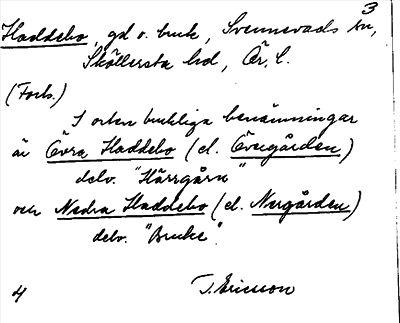 3
Haddebo, gd o. bruk, Svennevads sn,
Sköllersta hd, Ör. l.
(Forts.)
I orten brukliga benämningar
är Övra Haddebo (el. Övergården)
delv. "Härrgårn"
och Nedra Haddebo (el. Nergården)
delv. "Bruke".
4 T. Ericsson